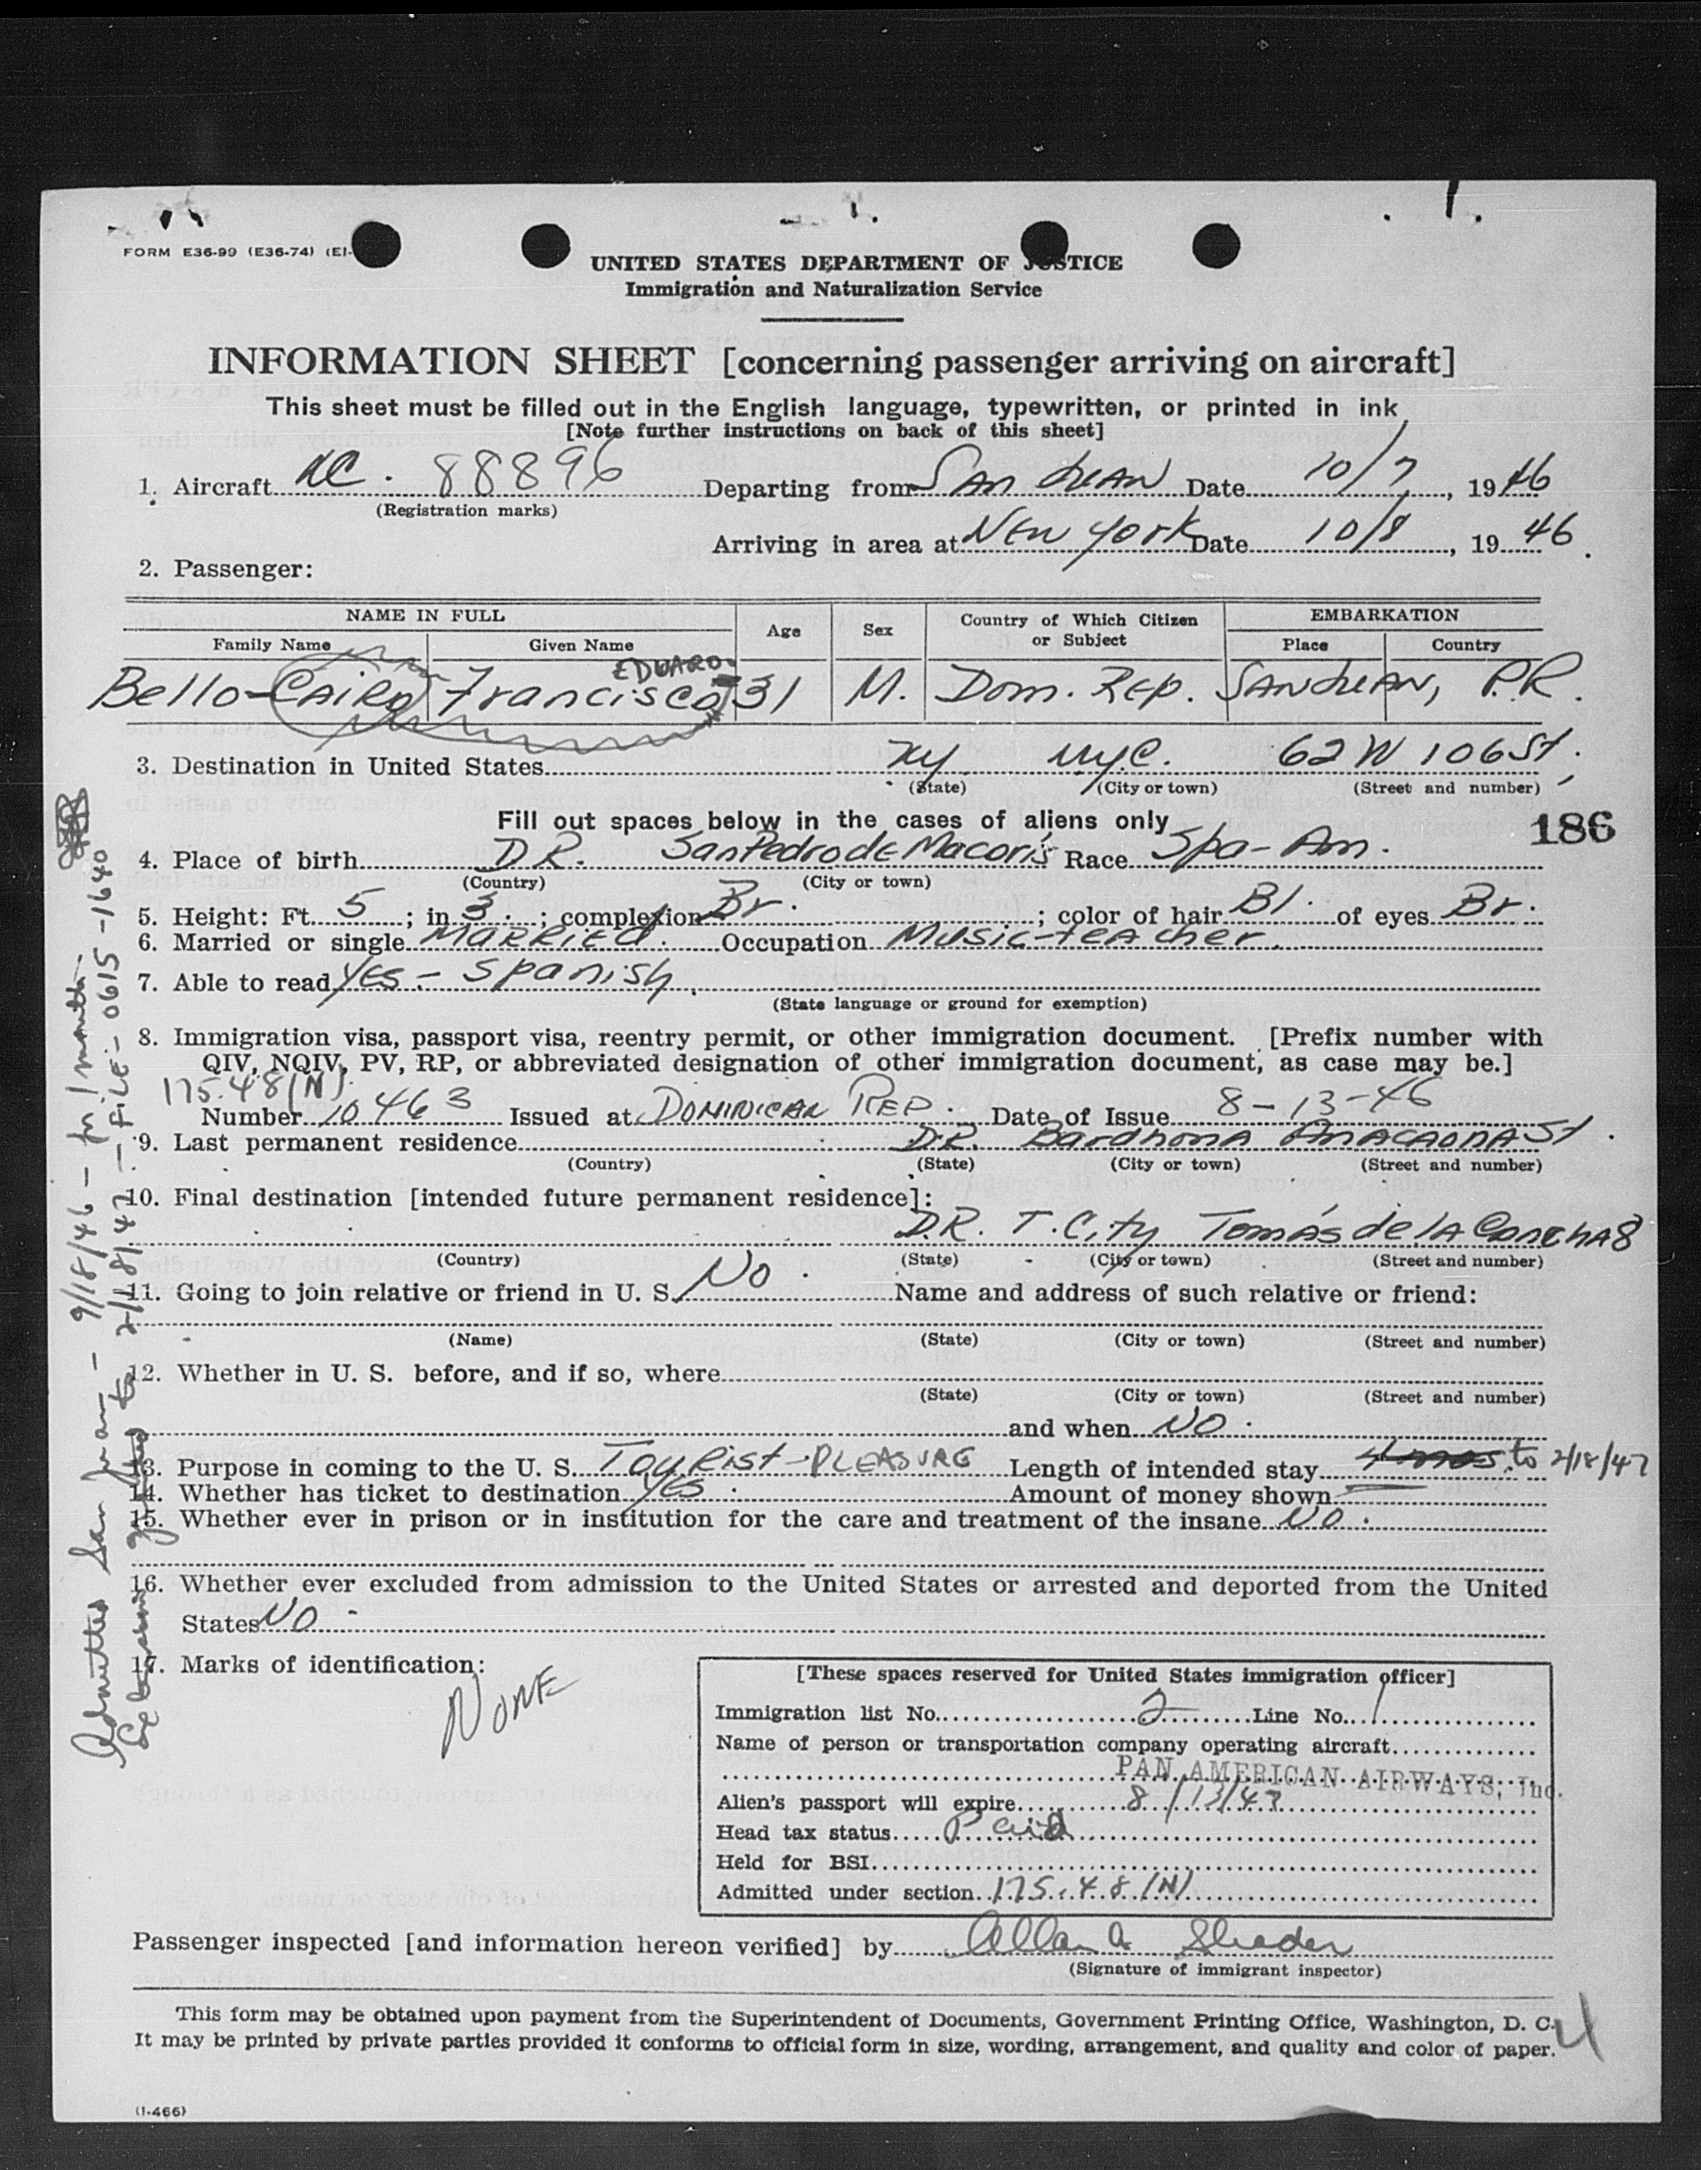 FORM E36-99 (E36-74) (EI-
UNITED STATES DEPARTMENT OF JUSTICE
Immigration and Naturalization Service
INFORMATION SHEET [concerning passenger arriving on aircraft]
This sheet must be filled out in the English language, typewritten, or printed in ink
[Note further instructions on back of this sheet]
1. Aircraft NC. 88896 Departing from San Juan Date 10/7, 1946
(Registration marks)
Arriving in area at New York Date 10/8, 1946.
2. Passenger:
NAME IN FULL Age Sex Country of Which Citizen or Subject EMBARKATION
Family Name Given Name Place Country
EDUARDO
Bello-Cairo Francisco 31 M. Dom. Rep. San Juan, P.R.
3. Destination in United States NY NYC. 62 W 106 St.
(State) (City or town) (Street and number)
Fill out spaces below in the cases of aliens only
186
4. Place of birth D.R. San Pedro de Macorís Race Spa-Am.
(Country) (City or town)
5. Height: Ft. 5; in 3.; complexion Br.; color of hair Bl. of eyes Br.
6. Married or single Married. Occupation Music-teacher.
7. Able to read Yes - Spanish.
(State language or ground for exemption)
8. Immigration visa, passport visa, reentry permit, or other immigration document. [Prefix number with
QIV, NQIV, PV, RP, or abbreviated designation of other immigration document, as case may be.]
175.48(N)
Number 10463 Issued at Dominican Rep. Date of Issue 8-13-46
9. Last permanent residence D.R. Barahona Anacaona St.
(Country) (State) (City or town) (Street and number)
10. Final destination [intended future permanent residence]:
D.R. T. City Tomás de la Concha 8
(Country) (State) (City or town) (Street and number)
11. Going to join relative or friend in U. S. No. Name and address of such relative or friend:
(Name) (State) (City or town) (Street and number)
12. Whether in U. S. before, and if so, where
(State) (City or town) (Street and number)
and when No.
13. Purpose in coming to the U. S. Tourist-PLEASURE Length of intended stay 4 mos. to 2/18/47
14. Whether has ticket to destination Yes. Amount of money shown
15. Whether ever in prison or in institution for the care and treatment of the insane No.
16. Whether ever excluded from admission to the United States or arrested and deported from the United
States No -
17. Marks of identification:
None
[These spaces reserved for United States immigration officer]
Immigration list No. 2 Line No. 1
Name of person or transportation company operating aircraft
PAN AMERICAN AIRWAYS, Inc.
Alien's passport will expire 8/13/47
Head tax status Paid
Held for BSI
Admitted under section 175.48(N)
Passenger inspected [and information hereon verified] by Allan A Shader
(Signature of immigrant inspector)
This form may be obtained upon payment from the Superintendent of Documents, Government Printing Office, Washington, D. C.
It may be printed by private parties provided it conforms to official form in size, wording, arrangement, and quality and color of paper.
4
(1-466)
Admitted San Juan - 9/18/46 - for 1 month.
granted to 2/18/47 - FILE - 0615-1640